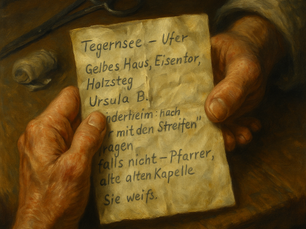 Tegernsee – Ufer
Gelbes Haus, Eisentor,
Holzsteg
Ursula B.,
nderheim nach
r mit den Streifen"
ragen
falls nicht – Pfarrer,
alte alten Kapelle
Sie weiß.